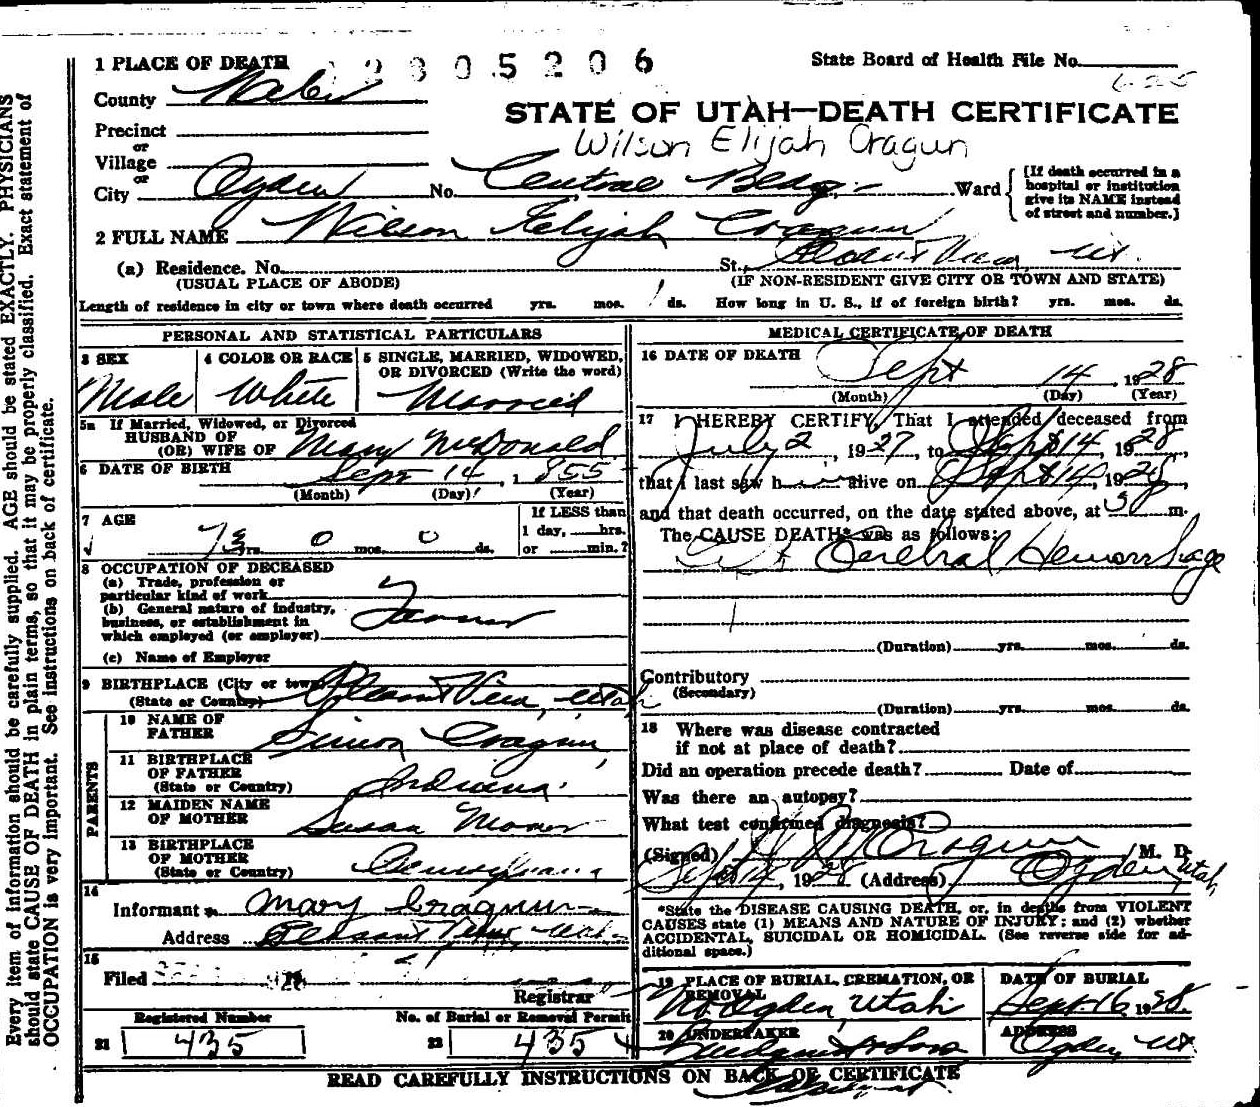 1 PLACE OF DEATH 2805206 State Board of Health File No.
County Weber
STATE OF UTAH—DEATH CERTIFICATE
Precinct
or
Wilson Elijah Cragun
Village
or
City Ogden No. Central Bldg. Ward
[If death occurred in a hospital or institution give its NAME instead of street and number.]
2 FULL NAME Wilson Elijah Cragun
(a) Residence. No. St. Pleasant View, Ut.
(USUAL PLACE OF ABODE) (IF NON-RESIDENT GIVE CITY OR TOWN AND STATE)
Length of residence in city or town where death occurred yrs. mos. ds. How long in U. S., if of foreign birth? yrs. mos. ds.
PERSONAL AND STATISTICAL PARTICULARS
3 SEX 4 COLOR OR RACE 5 SINGLE, MARRIED, WIDOWED,
OR DIVORCED (Write the word)
Male White Married
5a If Married, Widowed, or Divorced
HUSBAND OF
(OR) WIFE OF Mary McDonald
6 DATE OF BIRTH Sept 14, 1855
(Month) (Day) (Year)
7 AGE If LESS than
1 day, hrs.
73 yrs. 0 mos. 0 ds. or min.?
8 OCCUPATION OF DECEASED
(a) Trade, profession or
particular kind of work
(b) General nature of industry,
business, or establishment in
which employed (or employer)
(c) Name of Employer
9 BIRTHPLACE (City or town)
(State or Country) Pleasant View, Utah
PARENTS
10 NAME OF
FATHER Simon Cragun
11 BIRTHPLACE
OF FATHER
(State or Country) Indiana
12 MAIDEN NAME
OF MOTHER Susan
13 BIRTHPLACE
OF MOTHER
(State or Country) Pennsylvania
14
Informant Mary Cragun
Address Pleasant View, Utah
15
Filed
Registrar
Registered Number No. of Burial or Removal Permit
21 435 22 435
MEDICAL CERTIFICATE OF DEATH
16 DATE OF DEATH
Sept 14, 1928
(Month) (Day) (Year)
17 I HEREBY CERTIFY, That I attended deceased from
July 2, 1927, to Sept 14, 1928,
that I last saw h im alive on Sept 14, 1928,
and that death occurred, on the date stated above, at m.
The CAUSE DEATH* was as follows:
Cerebral Hemorrhage
(Duration) yrs. mos. ds.
Contributory
(Secondary)
(Duration) yrs. mos. ds.
18 Where was disease contracted
if not at place of death?
Did an operation precede death? Date of
Was there an autopsy?
What test confirmed diagnosis?
(Signed) Cragun, M. D.
Sept 14, 1928 (Address) Ogden, Utah
*State the DISEASE CAUSING DEATH, or, in deaths from VIOLENT
CAUSES state (1) MEANS AND NATURE OF INJURY; and (2) whether
ACCIDENTAL, SUICIDAL OR HOMICIDAL. (See reverse side for ad-
ditional space.)
19 PLACE OF BURIAL, CREMATION, OR
REMOVAL
No. Ogden, Utah
DATE OF BURIAL
Sept. 16, 1928.
20 UNDERTAKER
ADDRESS
Ogden, Ut.
READ CAREFULLY INSTRUCTIONS ON BACK OF CERTIFICATE
Every item of information should be carefully supplied. AGE should be stated EXACTLY. PHYSICIANS
should state CAUSE OF DEATH in plain terms, so that it may be properly classified. Exact statement of
OCCUPATION is very important. See instructions on back of certificate.